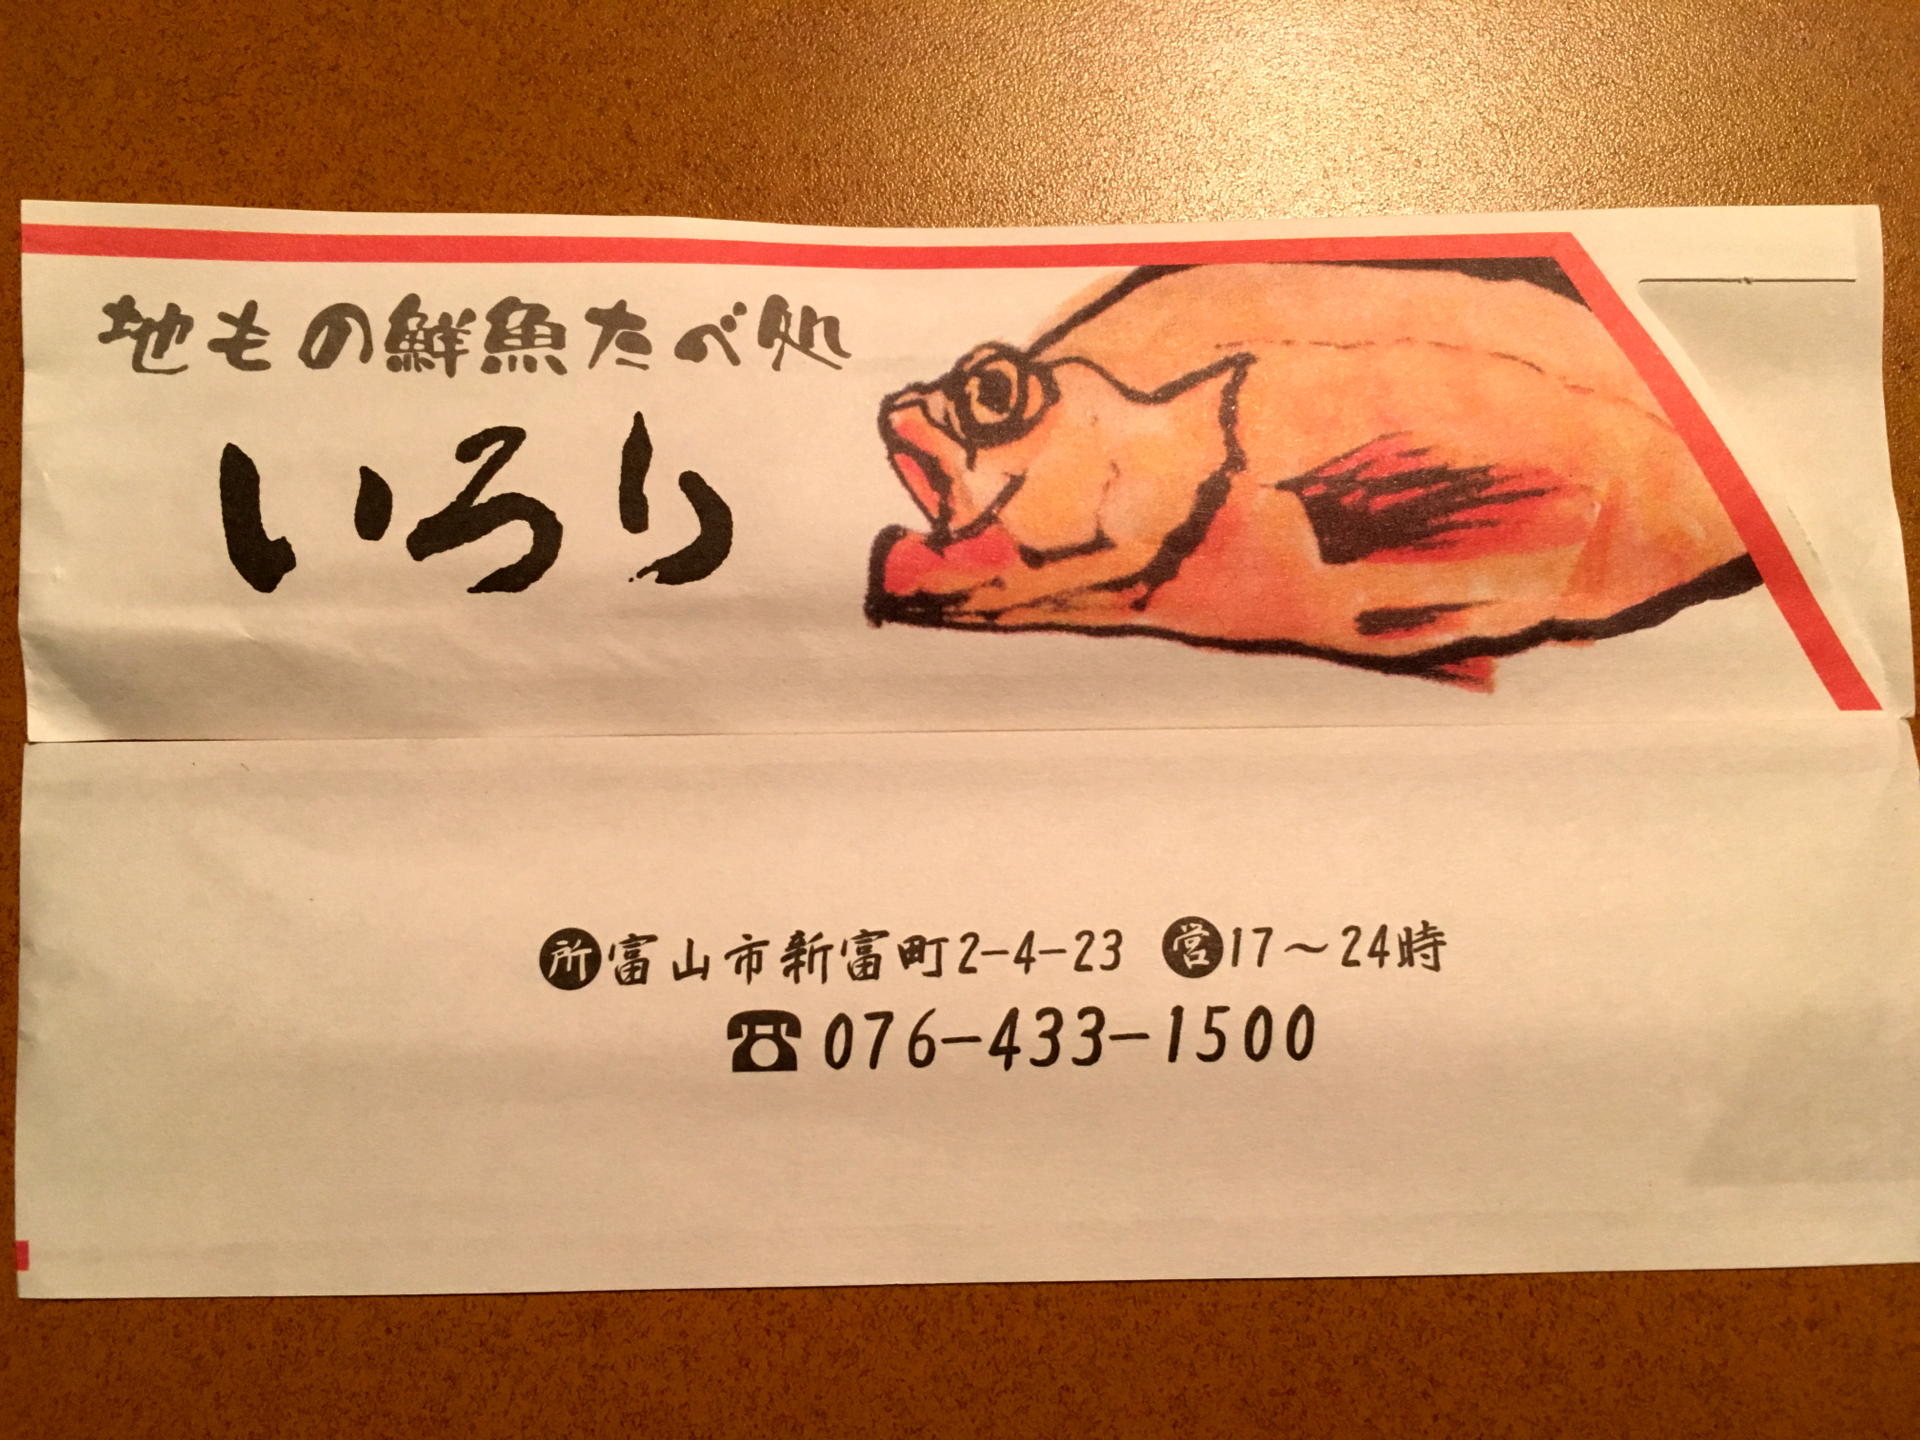 地もの鮮魚たべ処
いろり
所 富山市新富町2-4-23 営 17〜24時
☎ 076-433-1500